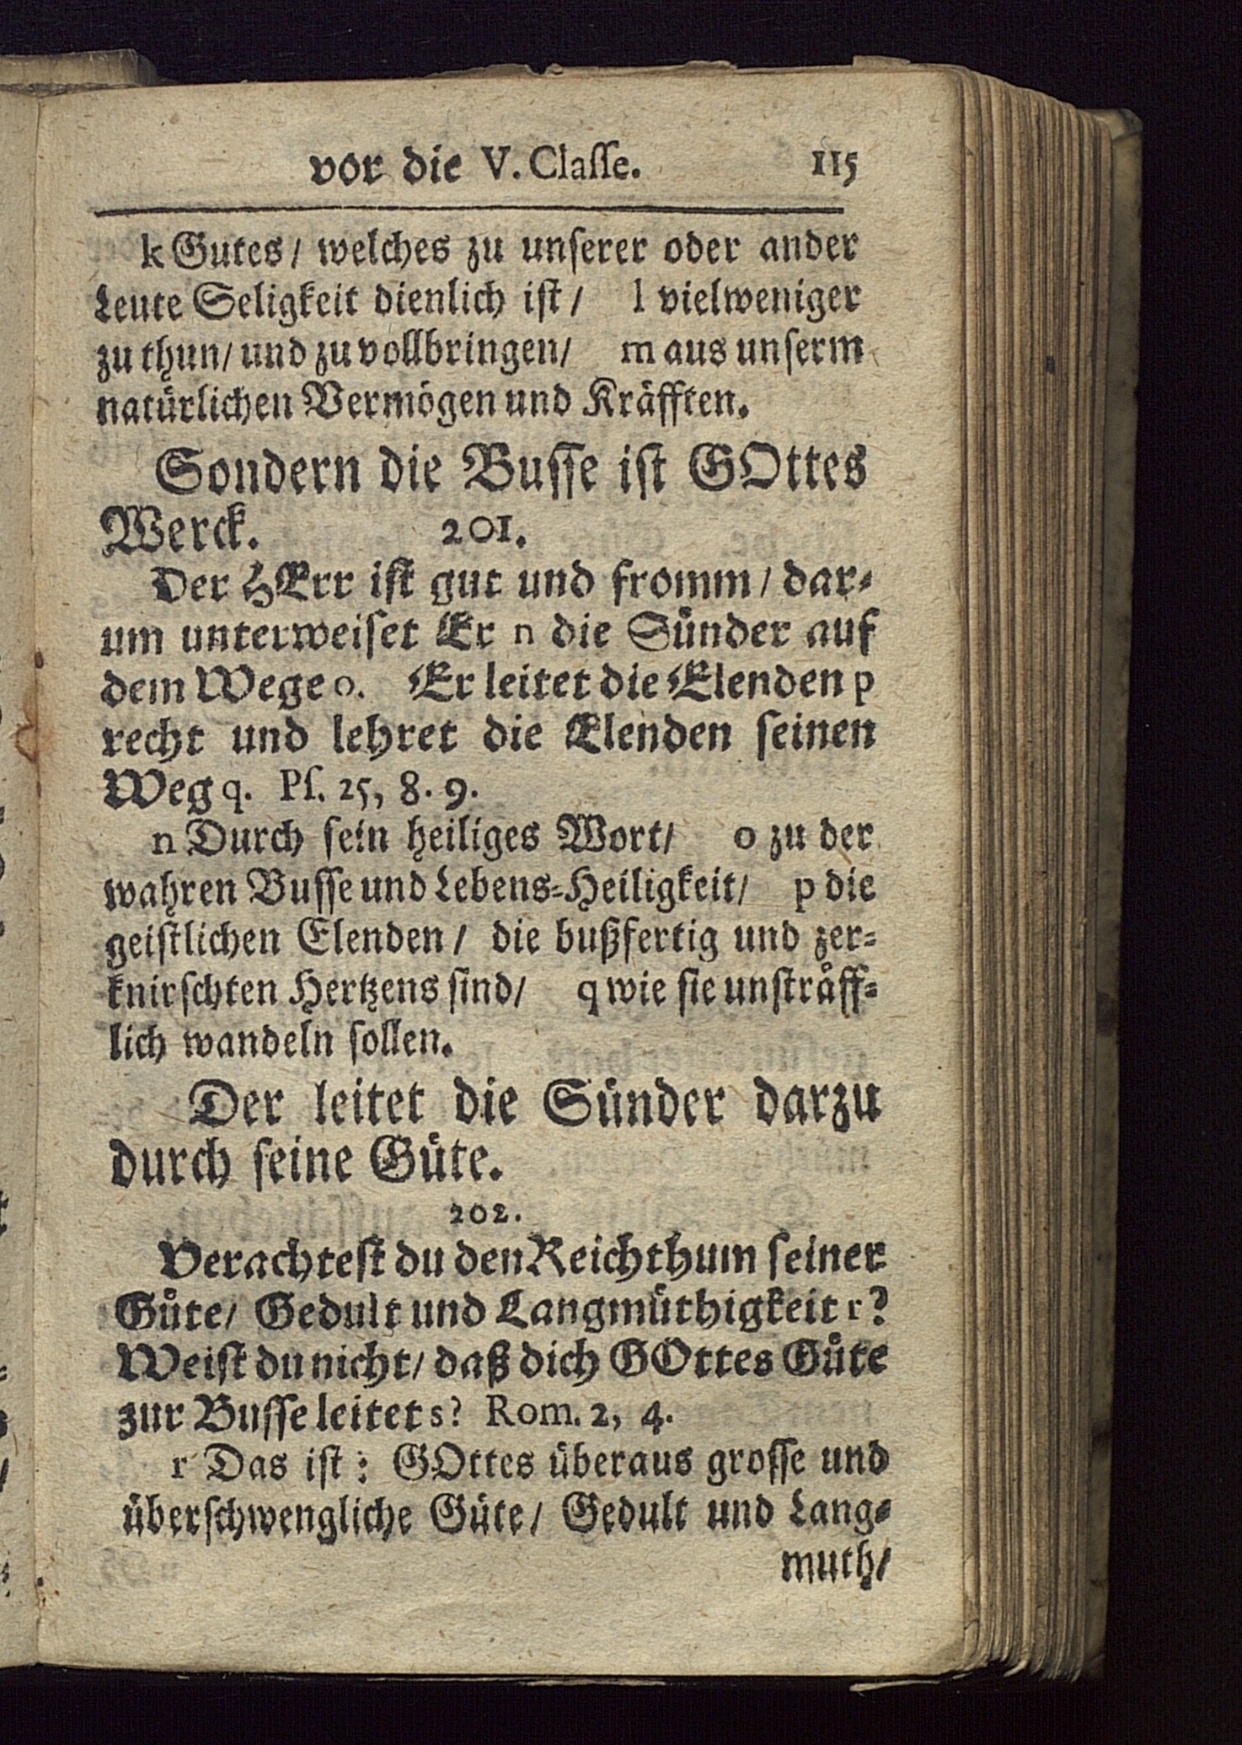 vor die V. Classe. 115
k Gutes/ welches zu unserer oder ander
Leute Seligkeit dienlich ist/ l vielweniger
zu thun/ und zu vollbringen/ m aus unserm
natürlichen Vermögen und Kräfften.
Sondern die Busse ist GOttes
Werck. 201.
Der HErr ist gut und fromm/ dar-
um unterweiset Er n die Sünder auf
dem Wege o. Er leitet die Elenden p
recht und lehret die Elenden seinen
Weg q. Ps. 25, 8. 9.
n Durch sein heiliges Wort/ o zu der
wahren Busse und Lebens-Heiligkeit/ p die
geistlichen Elenden/ die bußfertig und zer-
knirschten Hertzens sind/ q wie sie unsträff-
lich wandeln sollen.
Der leitet die Sünder darzu
durch seine Güte.
202.
Verachtest du den Reichthum seiner
Güte/ Gedult und Langmüthigkeit r?
Weist du nicht/ daß dich GOttes Güte
zur Busse leitet s? Rom. 2, 4.
r Das ist: GOttes überaus grosse und
überschwengliche Güte/ Gedult und Lang-
muth/